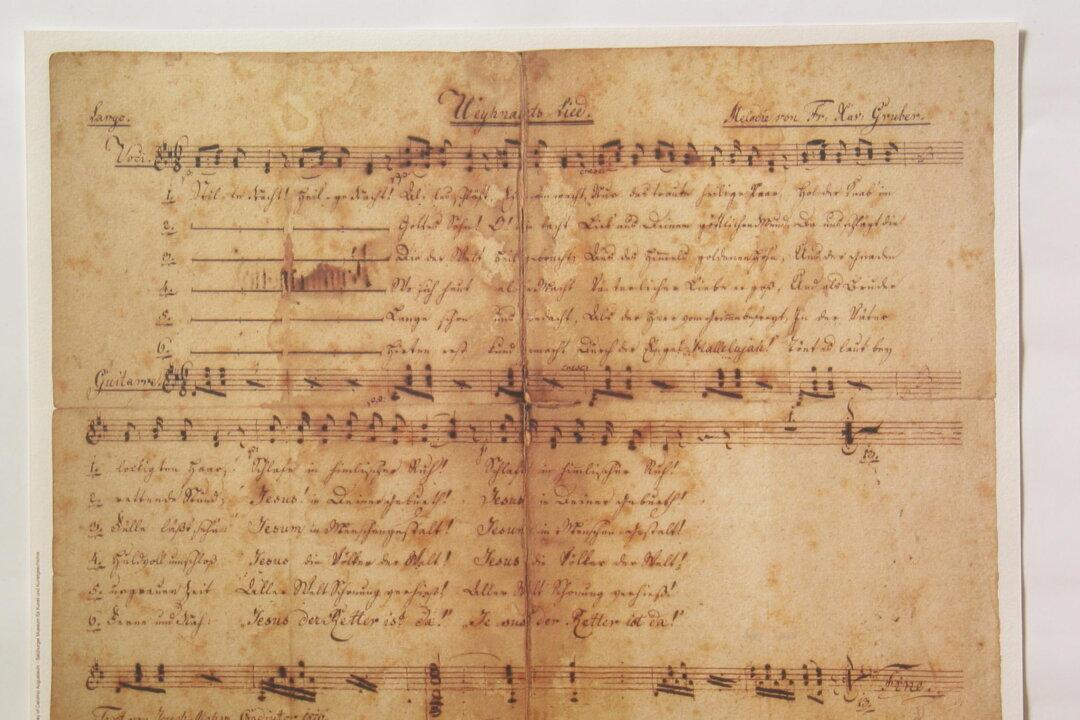 Largo. Weyhnachts-Lied. Melodie von Fr: Xav: Gruber.
Voci.
1. Stil-le Nacht! Heil-ge Nacht! Al-les schläft, Ei- am wacht, Nur das traute heilige Paar, Hol-der Knab' im
2. Gottes Sohn! O! wie lacht Lieb' aus Deinem göttlichen Mund, Da uns schlägt die
3. Die der Welt Heil gebracht, Aus des Himmels goldenen Höhn, Aus der Gnaden
4. Wo sich heut al- Macht Väterlicher Liebe ergoß, Und als Bruder
5. Lange schon uns bedacht, Als der Herr vom Grimme befreyt, In der Väter
6. Hirten erst kund gemacht Durch der Engel Hallelujah! Tönt es laut bey
Guitarre. cresc:
1. lockigten Haar! Schlafe in himlischer Ruh! Schlafe in himlischer Ruh!
2. rettende Stund; Jesus! in Deiner Geburth! Jesus in Deiner Geburth!
3. Fülle läßt sehn Jesum in Menschengestalt! Jesum in Menschen Gestalt!
4. Huldvoll umschloß Jesus die Völker der Welt! Jesus die Völker der Welt!
5. urgrauer Zeit Aller Welt Schonung verhieß! Aller Welt Schonung verhieß!
6. Ferne und Nah: "Jesus der Retter ist da!" "Jesus der Retter ist da!"
Fine.
Text von Joseph Mohr Coadjutor 1816